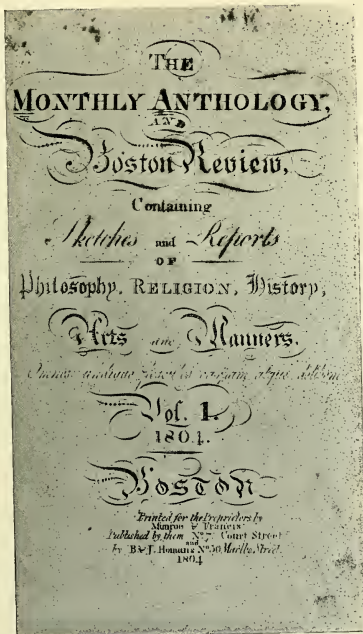 THE
MONTHLY ANTHOLOGY,
AND
Boston Review,
Containing
Sketches and Reports
OF
Philosophy, RELIGION, History,
Arts and Manners.
Vol. 1.
1804.
BOSTON
Printed for the Proprietors by
Munroe & Francis
Published by them No 7 Court Street
and
by B & J. Homans No 50, Marlbo. Street
1804